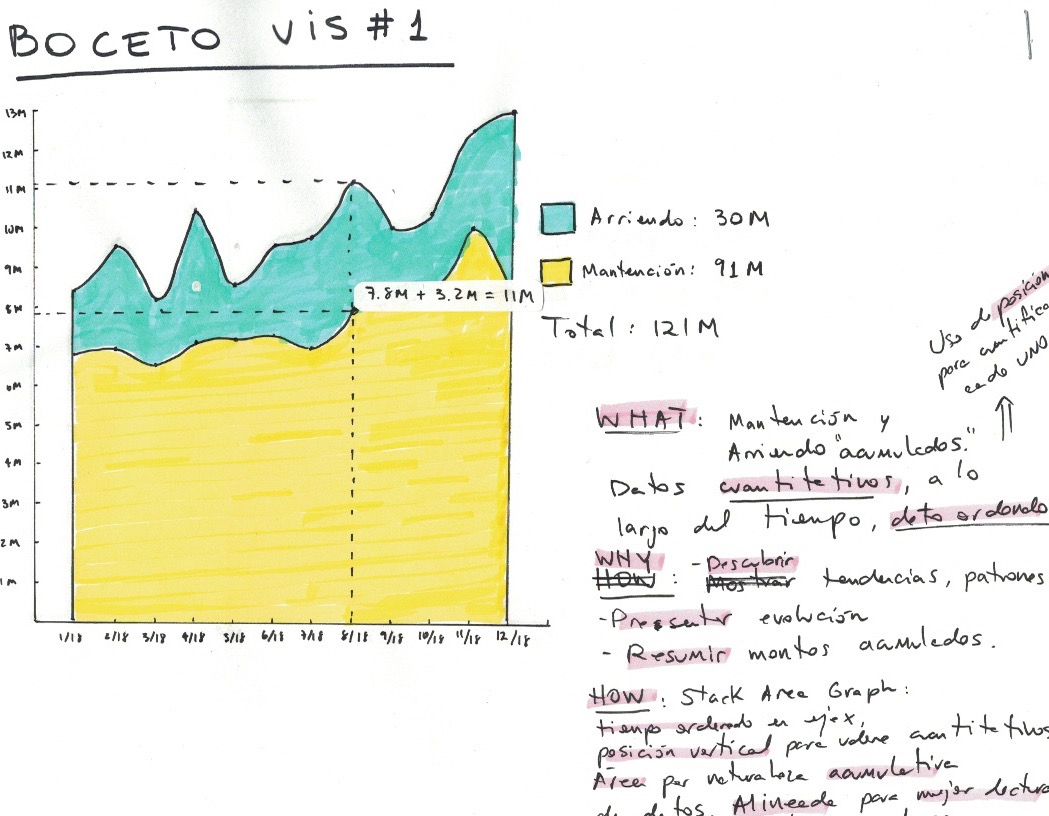 BOCETO VIS #1
13M
12M
11M
10M
9M
8M
7M
6M
5M
4M
3M
2M
1M
1/18 2/18 3/18 4/18 5/18 6/18 7/18 8/18 9/18 10/18 11/18 12/18
7.8M + 3.2M = 11M
Arriendo: 30M
Mantención: 91M
Total: 121M
Uso de posición
para cuantifica
cada uno
WHAT: Mantención y
Arriendo "acumulados."
Datos cuantitativos, a lo
largo del tiempo, dato ordenado
WHY
HOW : - Descubrir
Mostrar tendencias, patrones
- Presentar evolución
- Resumir montos acumulados.
HOW: Stack Area Graph:
tiempo ordenado en eje x,
posición vertical para valore cuantitativos
Área por naturaleza acumulativa
de datos. Alineada para mejor lectura